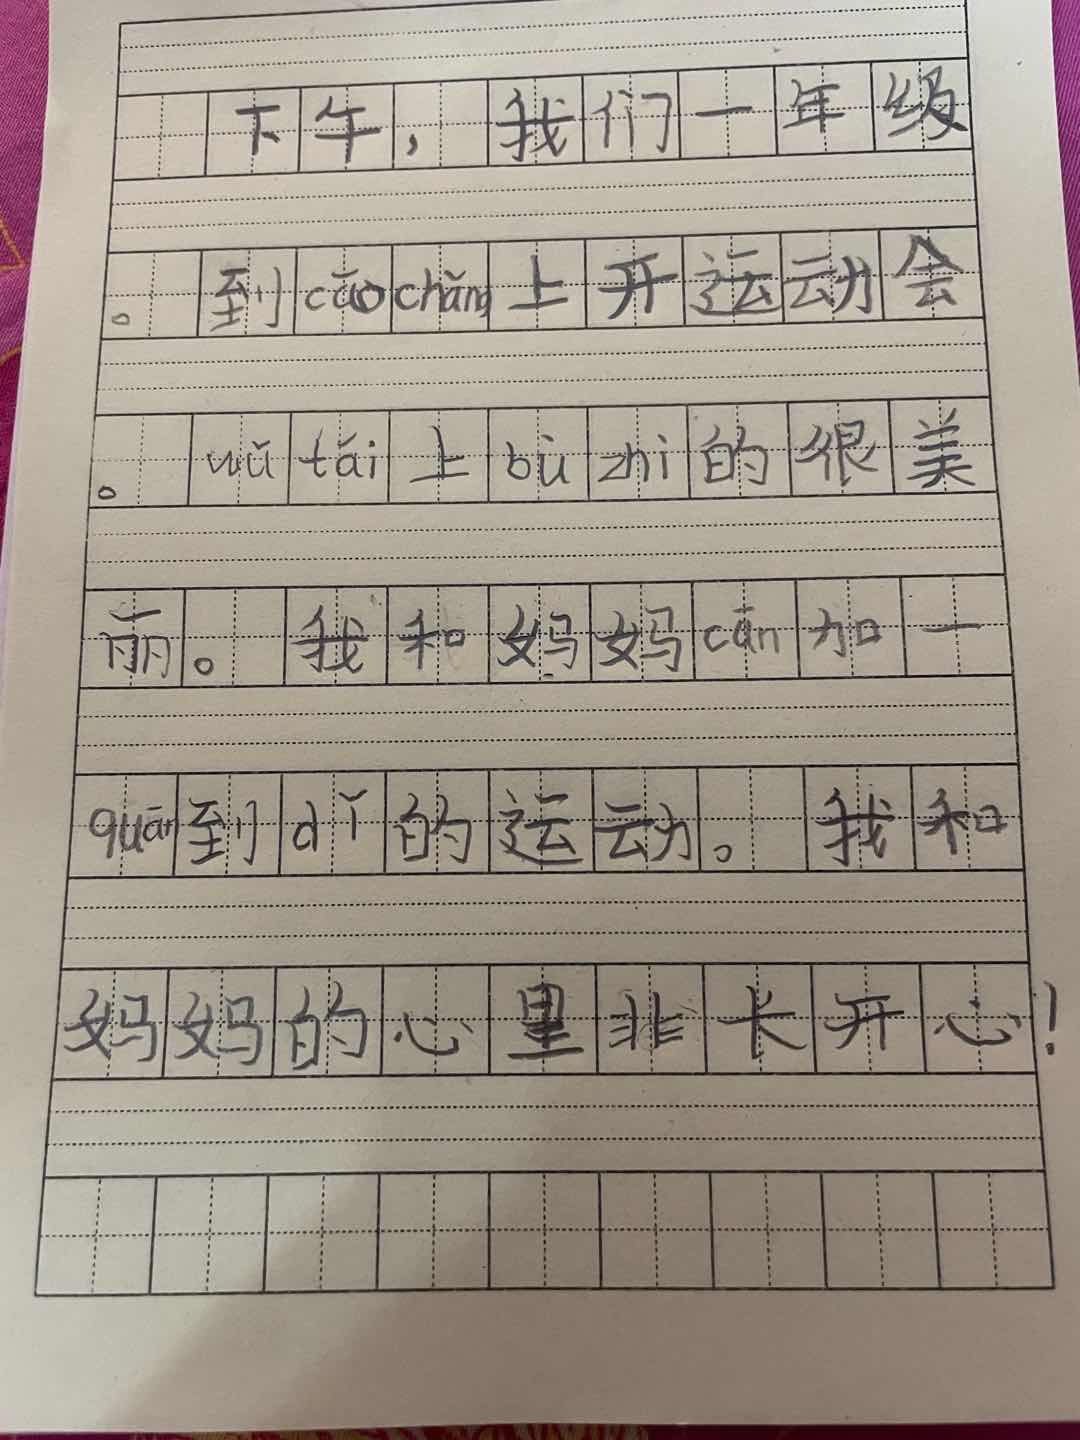 下午，我们一年级
。到cāochǎng上开运动会
。wǔtái上bùzhi的很美
丽。我和妈妈cān加一
quān到dǐ的运动。我和
妈妈的心里非长开心！